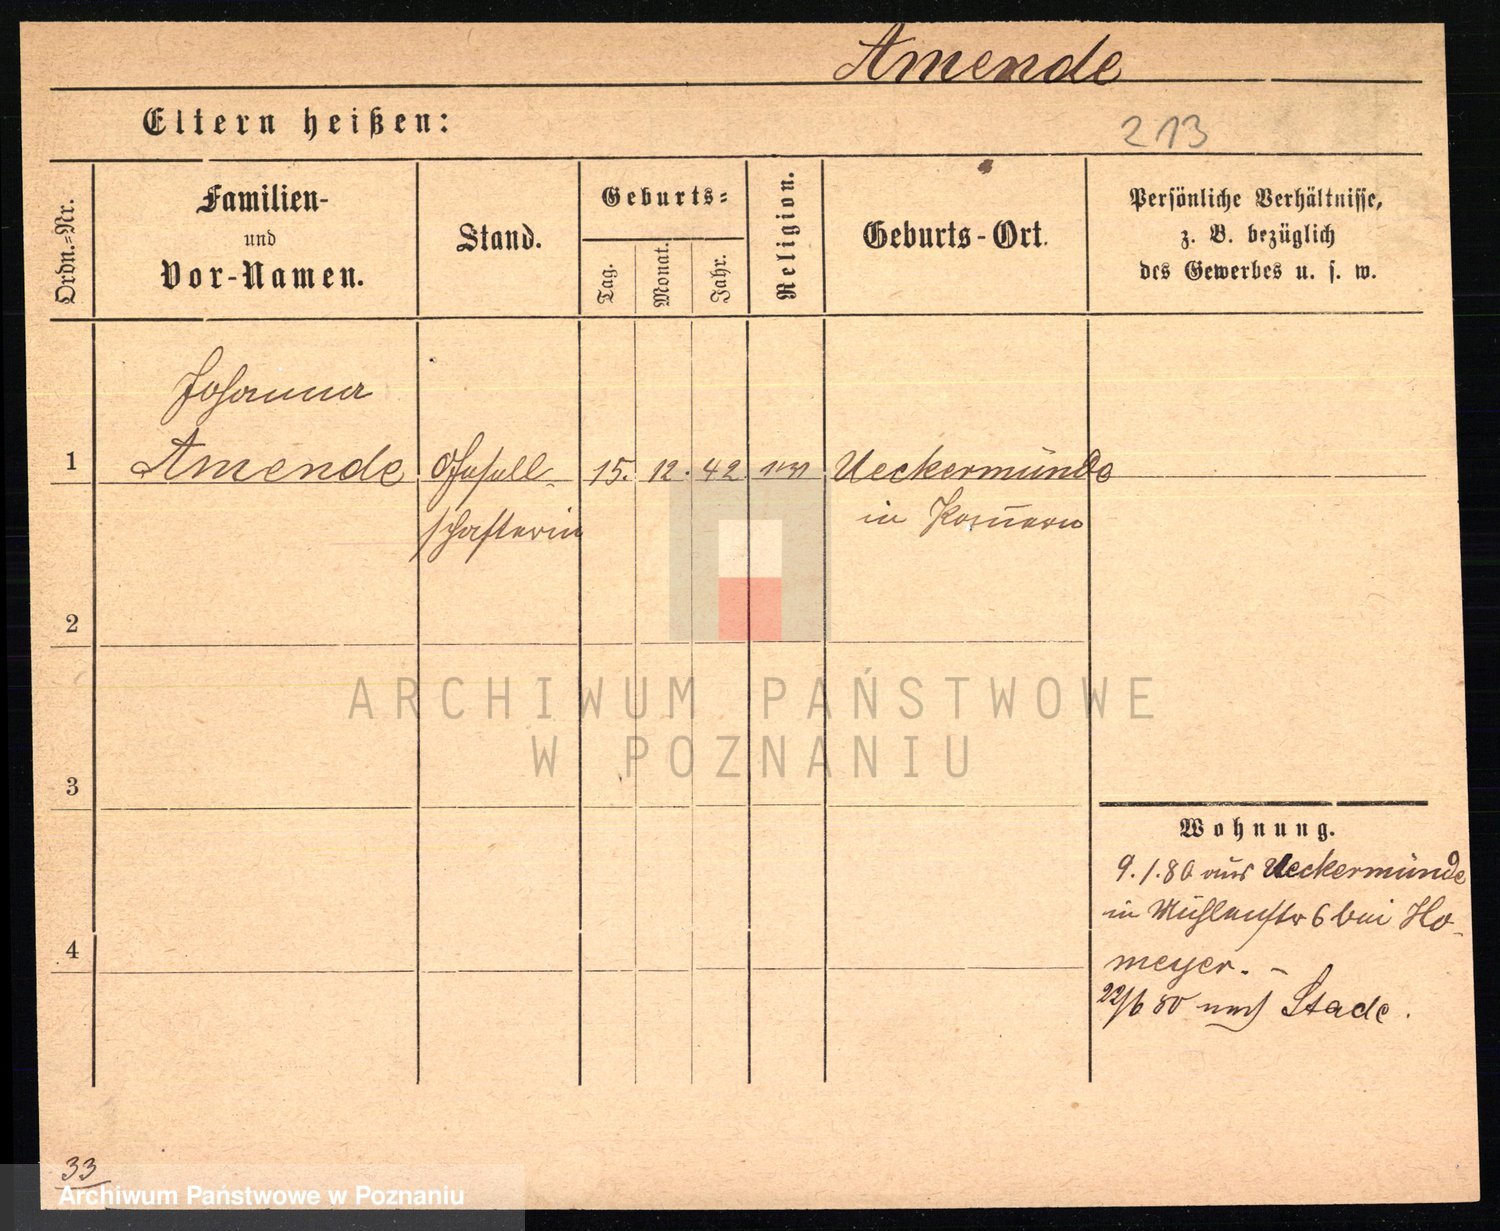 Amende
Eltern heißen:
213
Ordn.=Nr.
Familien-
und
Vor-Namen.
Stand.
Geburts=
Tag.
Monat.
Jahr.
Religion.
Geburts-Ort.
Persönliche Verhältnisse,
z. B. bezüglich
des Gewerbes u. s. w.
Johanna
1 Amende Gesell- 15. 12. 42 Ueckermünde
schafterin in Pom̄ern
2
ARCHIWUM PAŃSTWOWE
W POZNANIU
3
Wohnung.
9.1.80 aus Ueckermünde
in Mühlenstr 6 bei Ho-
4
meyer. -
22/6 80 nach Stade.
33
Archiwum Państwowe w Poznaniu